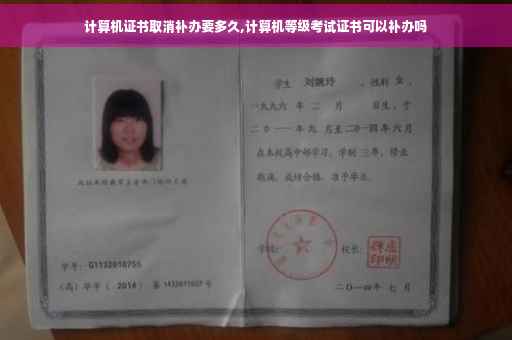 计算机证书取消补办要多久,计算机等级考试证书可以补办吗
学生 刘婉玲 ，性别 女 ，
一九九六 年 二 月 日生，于
二〇一一 年 九 月至 二〇一四 年 六 月
在本校高中部学习，学制 三 年，修业
期满，成绩合格，准予毕业。
学号：G1132010755
学校： 校长：
（高）毕字（ 2014 ）第 1432011027 号
二〇一四年 七 月